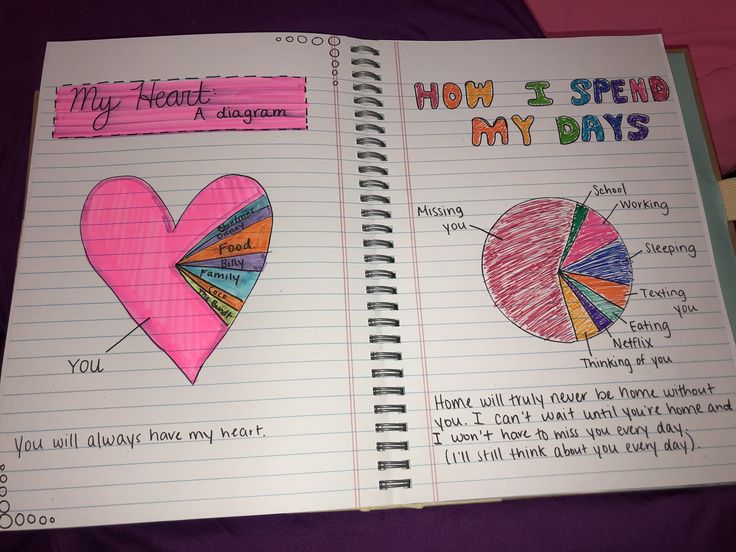 My Heart:
A diagram
Christmas
Disney
Food
Billy
Family
Coco
The Bandt
YOU
You will always have my heart.
HOW I SPEND
MY DAYS
School
Working
Missing
you
Sleeping
Texting
you
Eating
Netflix
Thinking of you
Home will truly never be home without
you. I can't wait until you're home and
I won't have to miss you every day.
(I'll still think about you every day).